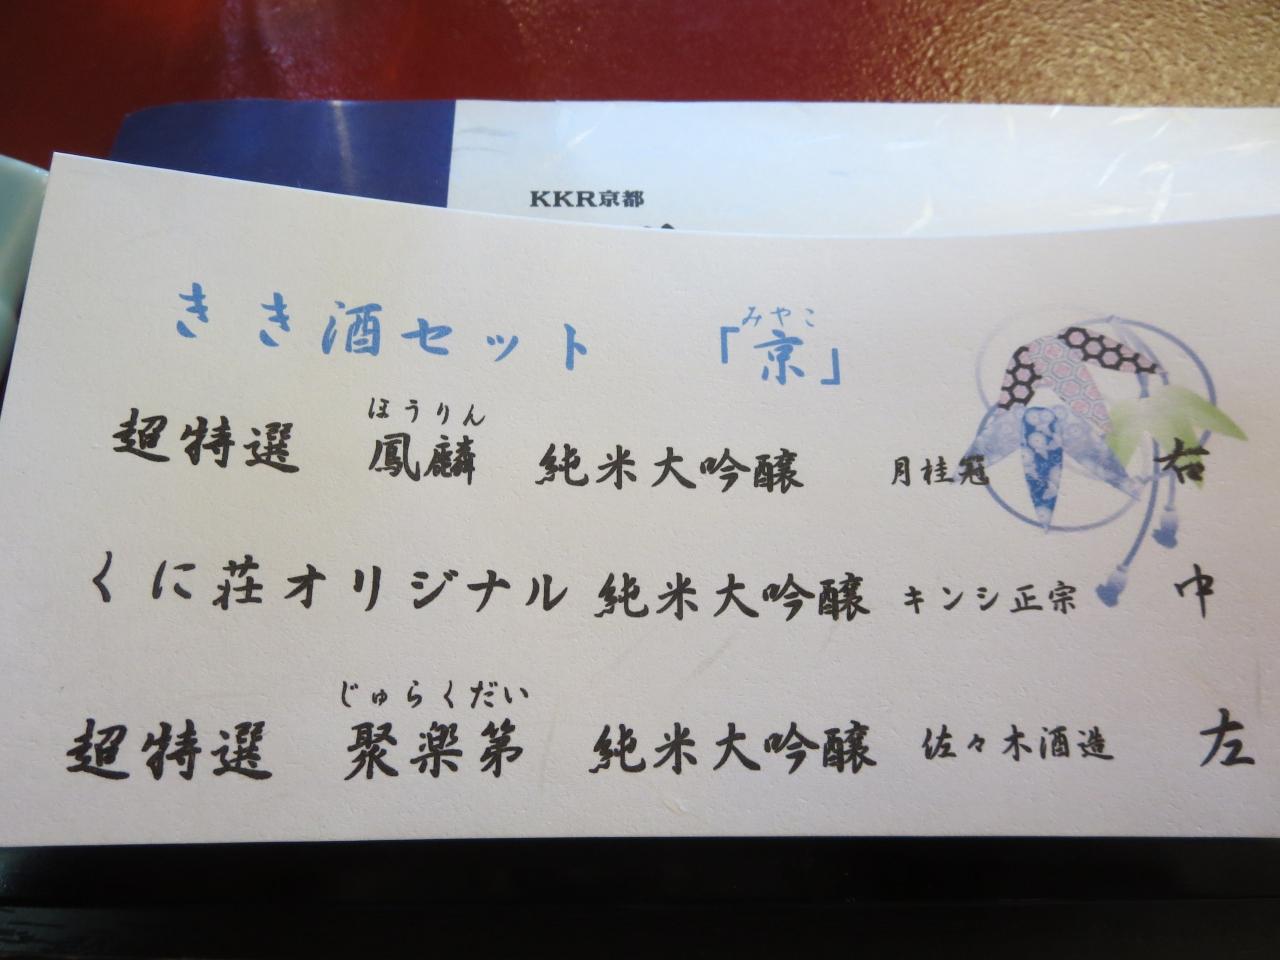 KKR京都
きき酒セット 「京」
みやこ
ほうりん
超特選 鳳麟 純米大吟醸 月桂冠 右
くに荘オリジナル 純米大吟醸 キンシ正宗 中
じゅらくだい
超特選 聚楽第 純米大吟醸 佐々木酒造 左